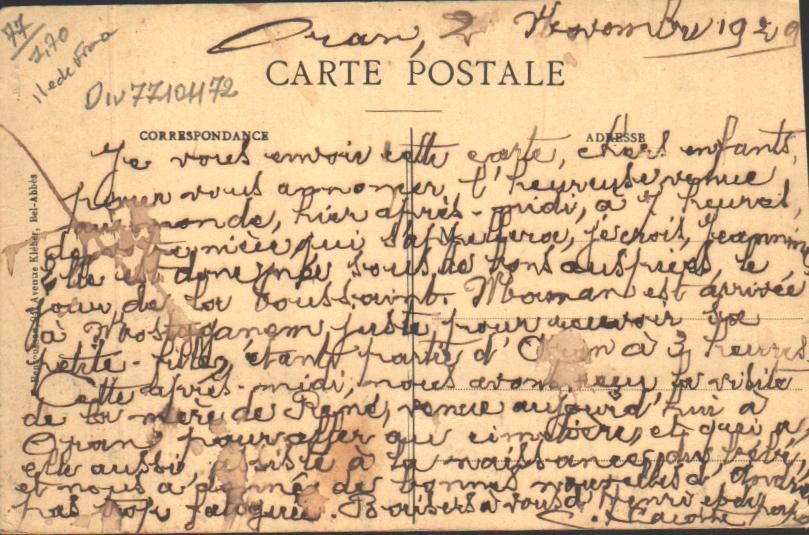 77
1,70
Oran, 2 Novembre 1929
CARTE POSTALE
CORRESPONDANCE
ADRESSE
Avenue Kléber, Bel-Abbès
Je vous envoie cette carte, chers enfants,
pour vous annoncer l'heureuse venue
au monde, hier après-midi, à 7 heures,
de nièce, qui s'appellera, je crois, Jeannine
Elle est donc née sous de bons auspices, le
jour de la Toussaint. Maman est arrivée
à Mostaganem juste pour recevoir sa
petite-fille, étant partie d'Oran à 3 heures
Cette après-midi, nous avons reçu la visite
de la mère de René, venue aujourd'hui à
Oran pour aller au cimetière, et qui a,
elle aussi assisté à la naissance du bébé,
et nous a donné de bonnes nouvelles d'
pas trop fatiguée. Baisers à vous d'Henri et
Lacoste